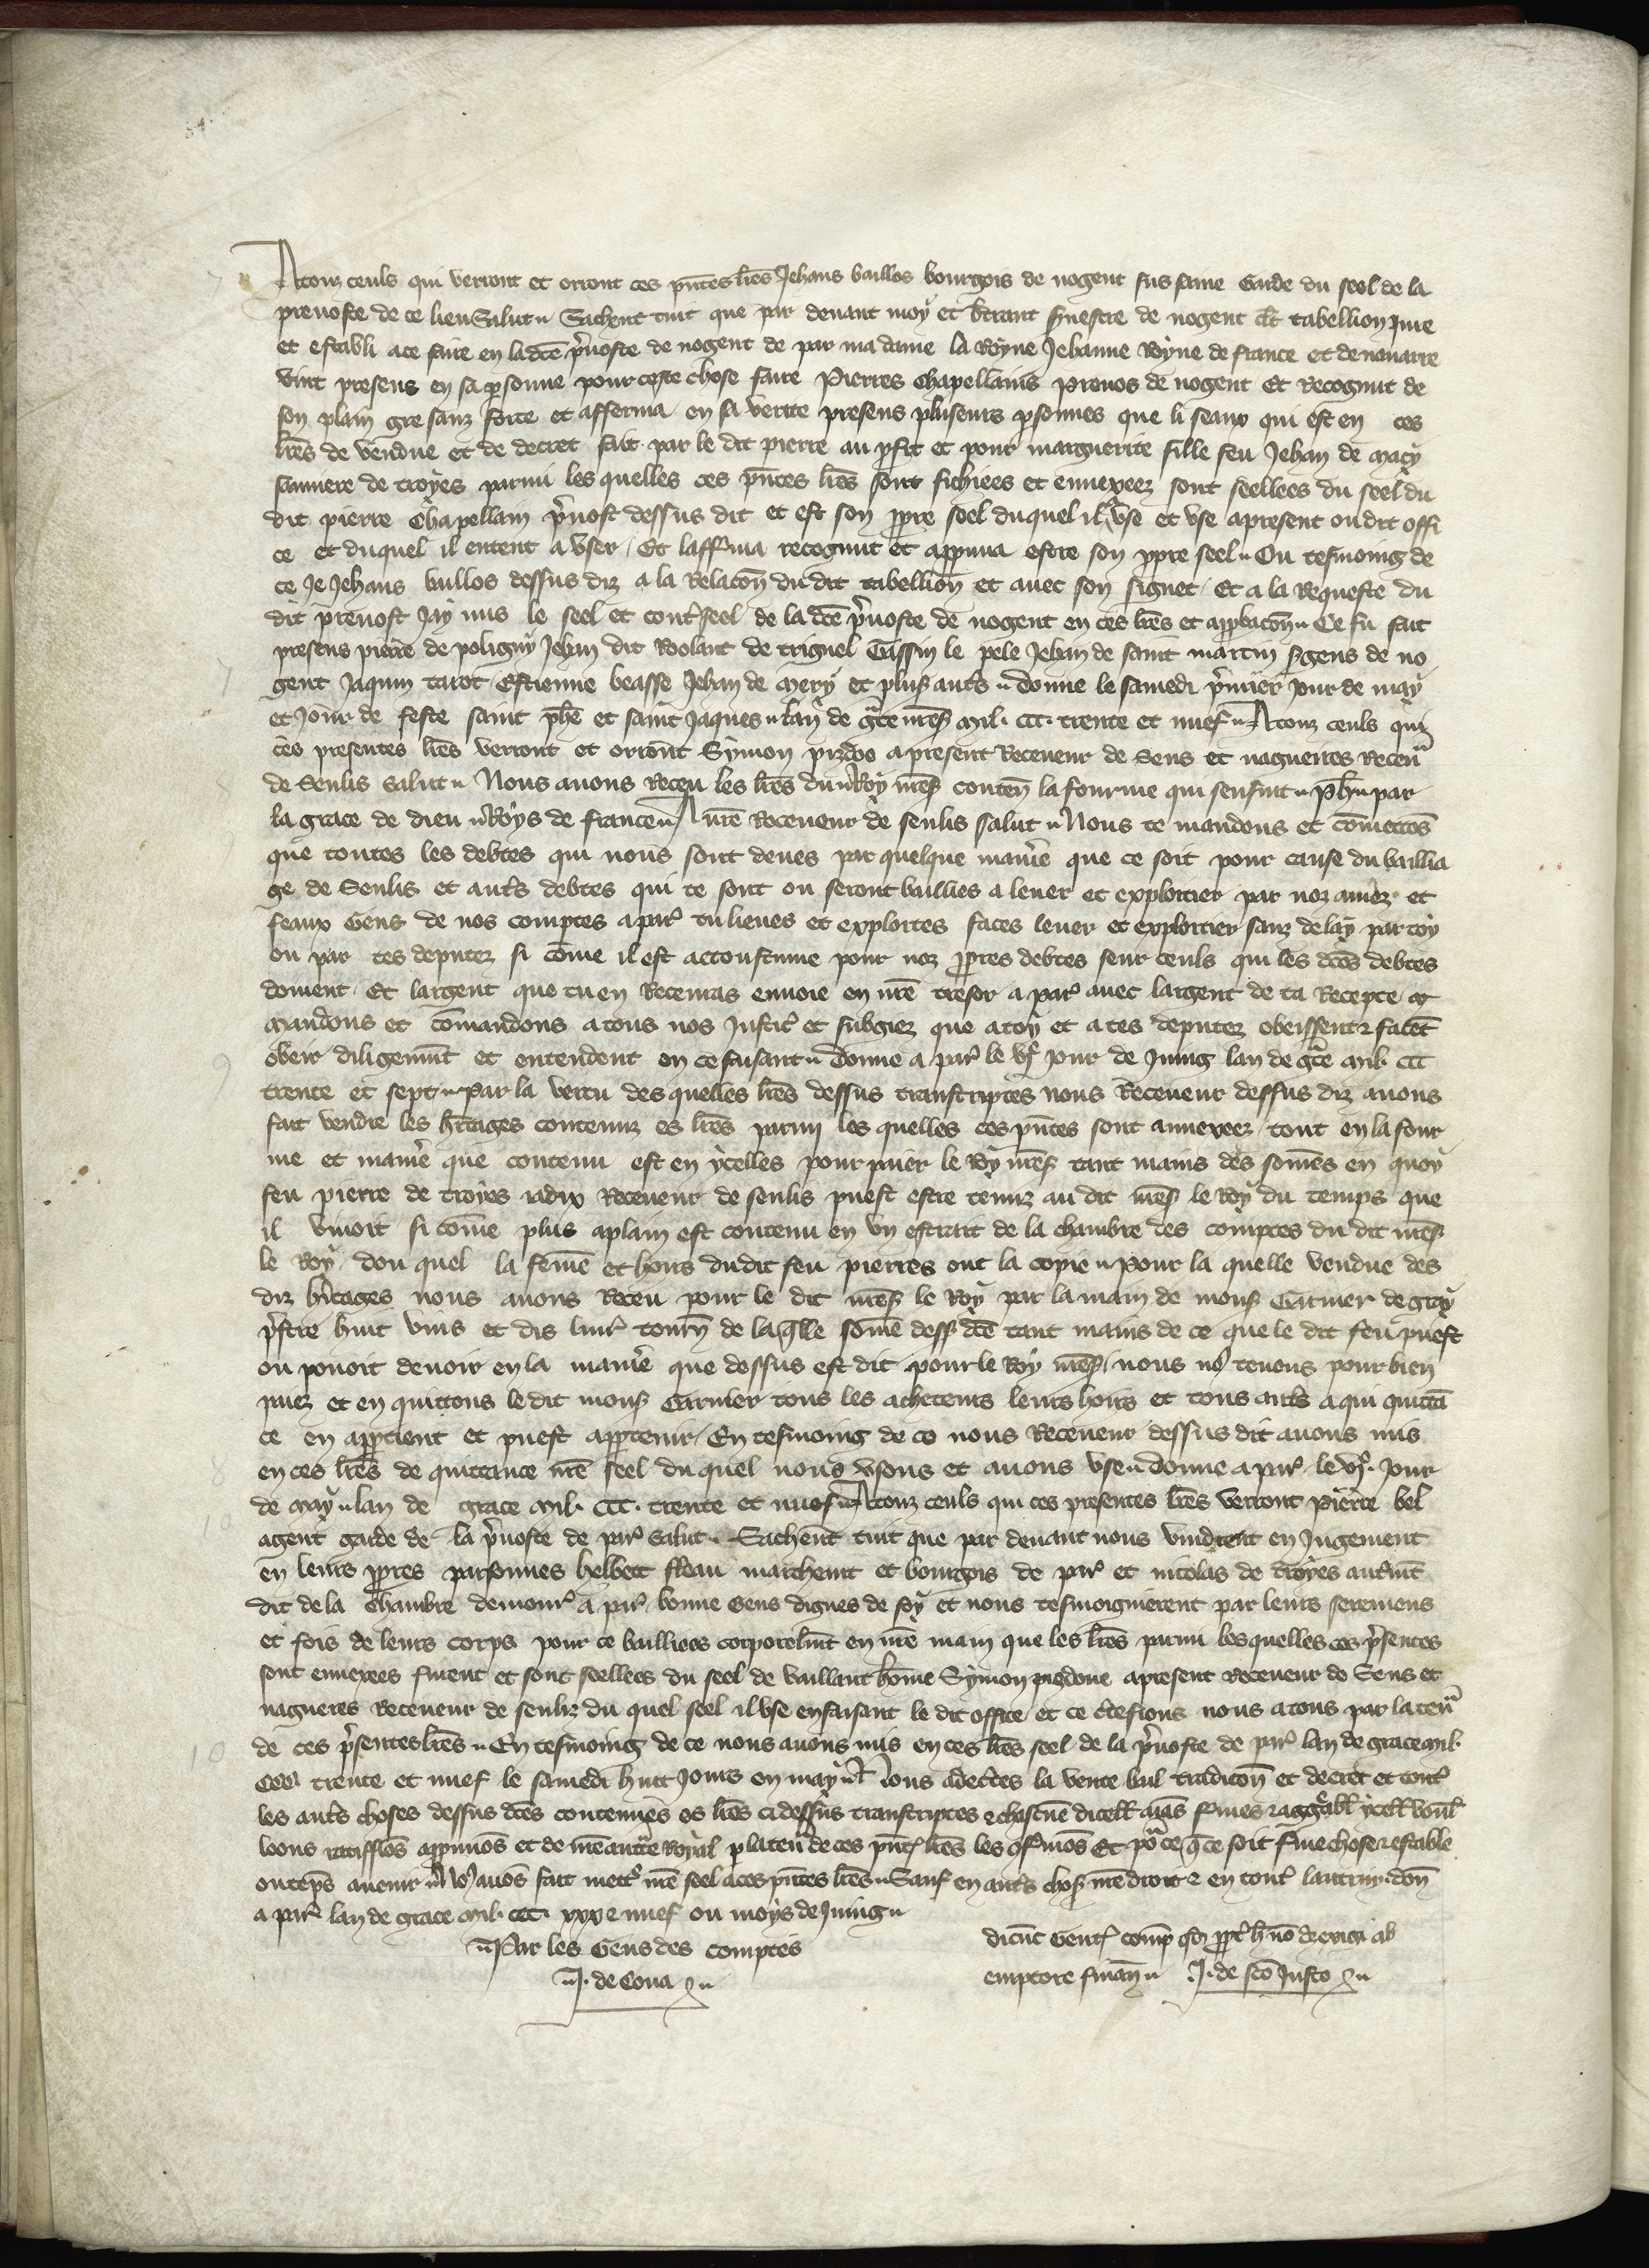 A touz ceuls qui verront et orront ces pñtes lr̃es Jehans baillos bourgois de nogent sus saine Garde du seel de la
prevoste de ce lieu Salut Sachent tuit que par devant moy et bertrant senestre de nogent clt tabellion jure
et establi a ce faire en ladc̃e p̃voste de nogent de par ma dame la Royne Jehanne Royne de france et de navarre
vint presens en sa psonne pour ceste chose faire Pierres Chapellains Prevos de nogent Et Recognut de
son plain gre sanz force et afferma en sa verite presens pluseurs psonnes que li seaux qui est en ces
lr̃es de vendue et de decret fait par le dit pierre au pfit et pour marguerite fille feu Jehan de macy
de troyes parmi les quelles ces pñtes lr̃es sont fichiees et ennexeez sont seellees du seel du
dit pierre Chapellain p̃vost dessus dit et est son ppre seel duquel il use et use apresent ou dit offi
ce et duquel il entent a user Et laffma recognut et appuua estre son ppre seel Ou tesmoing de
ce Je Jehans baillos dessus diz a la Relacõn du dit tabellion et avec son signet Et a la Requeste du
dit prevost Jay mis le seel et contseel de la dc̃e p̃voste de nogent en ces lr̃es et appbacõn Ce fu fait
presens pierre de poligny Jehan dit Roolant de triguel Gassin le pele Jehan de saint martin sgens de no
gent Jaquin tarot Estienne beasse Jehan de mery et plus autͬs donne le samedi p̃mier jour de may
et jour de feste saint phẽ et saint Jaques lan de gͬce mil. ccc. trente et nuef A touz ceuls qui
ces presentes lr̃es verront et orront Symon pizdoe apresent Receveur de Sens et nagueires Recev̾
de Senlis salut Nous avons Receu les lr̃es du Roy nr̃es conteñ la fourme qui sensuit Ph̃ par
la grace de dieu Roys de france A nr̃e Receveur de senlis salut Nous te mandons et cõmettõs
que toutes les debtes qui nous sont deues par quelque manie que ce soit pour cause du baillia
ge de Senlis et autͬs debtes qui te sont ou seront baillies a lever et exploitier par noz amez et
feaux Genz de nos comptes a par̾ tu lieves et exploites faces lever et exploitier sanz delay par toy
ou par tes deputez si cõme il est accoustume pour noz ppres debtes seur ceuls qui les dc̃es debtes
doivent Et largent que tu en Recevras envoie en nr̃e tresor a par̾ avec largent de ta Recepte Et
mandons et cõmandons a tous nos Justic̾ et subgiez que a toy et a tes deputez obeissent 2 facẽt
obeir diligenmt et entendent en ce faisant donne a par̾ le vj̾ jour de Juing lan de gͬce mil. ccc
trente et sept Par la vertu des quelles lr̃es dessus transcriptes nous Receveur dessus diz avons
fait vendre les htages contenuz es lr̃es parmi les quelles ces pñtes sont annexeez tout en la four
me et manie que contenu est en ycelles pour paier le Roy nr̃es tant mains des sõmes en quoy
feu pierre de troyes jadix Receveur de senlis puest estre tenuz au dit nr̃es le Roy du temps que
il vivoit si cõme plus aplain est contenu en un estrait de la chambre des comptes du dit nr̃es
le Roy dou quel la fem̃e et hoirs du dit feu pierres ont la copie Pour la quelle vendue des
diz hitages nous avons Receu pour le dit nr̃es le Roy par la main de mons Garnier de gray
p̃stre huit vins et dis livr̾ tourñ de laq̃lle sõme dess dc̃e tant mains de ce que le dit feu puest
ou pouoit devoir en la manie que dessus est dit pour le Roy nr̃es nous no9 tenons pour bien
paiez et en quittons le dit mons Garnier tous les acheteurs leurs hoirs et tous autͬs a qui quittã
ce en apptient et puest apptenir En tesmoing de ce nous Receveur dessus dit avons mis
en ces lr̃es de quittance nr̃e seel du quel nous usons et avons use donne a par̾ le vj̾ jour
de may lan de grace mil. ccc. trente et nuef A touz ceuls qui ces presentes lr̃es verront Pierre bel
agent garde de la p̃voste de par̾ salut Sachent tuit que par devant nous vindrent en Jugement
en leurs ppres parsonnes helbert fleau marcheant et bourgois de par̾ et nicolas de troyes autͬmt
dit de la Chambre demour̾ a par̾ bonne Gens dignes de foy et nous tesmoignierent par leurs seremens
et fois de leurs corps pour ce bailliees corporelmt en nr̃e main que les lr̃es parmi lesquelles ces p̃sentes
sont ennexees furent et sont seellees du seel de vaillant hõme Symon pizdoue apresent Receveur de Sens et
nagueres Receveur de senliz du quel seel il use en faisant le dit office et ce ctefions nous a tous par la ten̾
de ces p̃sentes lr̃es En tesmoing de ce nous avons mis en ces lr̃es seel de la p̃voste de par̾ lan de grace mil.
ccc trente et nuef le samedi huit jours en may Nous adectes la vente bail tradicõn et decret et tout̾
les autͬs choses dessus dc̃es contenues es lr̃es ci dessus transcriptes 2 chascune dicell̾ aĩas fmes 2 aggͬabl̾ ycell̾ voul̾
loons ratiffiõs appuuõs et de nr̃e autte Royal p la ten̾ de ces pñt̾ lr̃es les 9fmõs Et põ ce q̃ ce soit fme chose 2 estable
ou tẽps avenir No9 avõs fait mettr̾ nr̃e seel a ces pñtes lr̃es Sauf en autͬs chos nr̃e droit 2 en tout̾ lautruy. doñ
a par̾ lan de grace mil. ccc. xxx e nuef ou moys de Juing
Par les Gens des comptes
J. de Cona
dicũt Gent̾ comp̃ q ppt̾ h nõ dz exigi ab
emptore finañ J. de scõ Justo